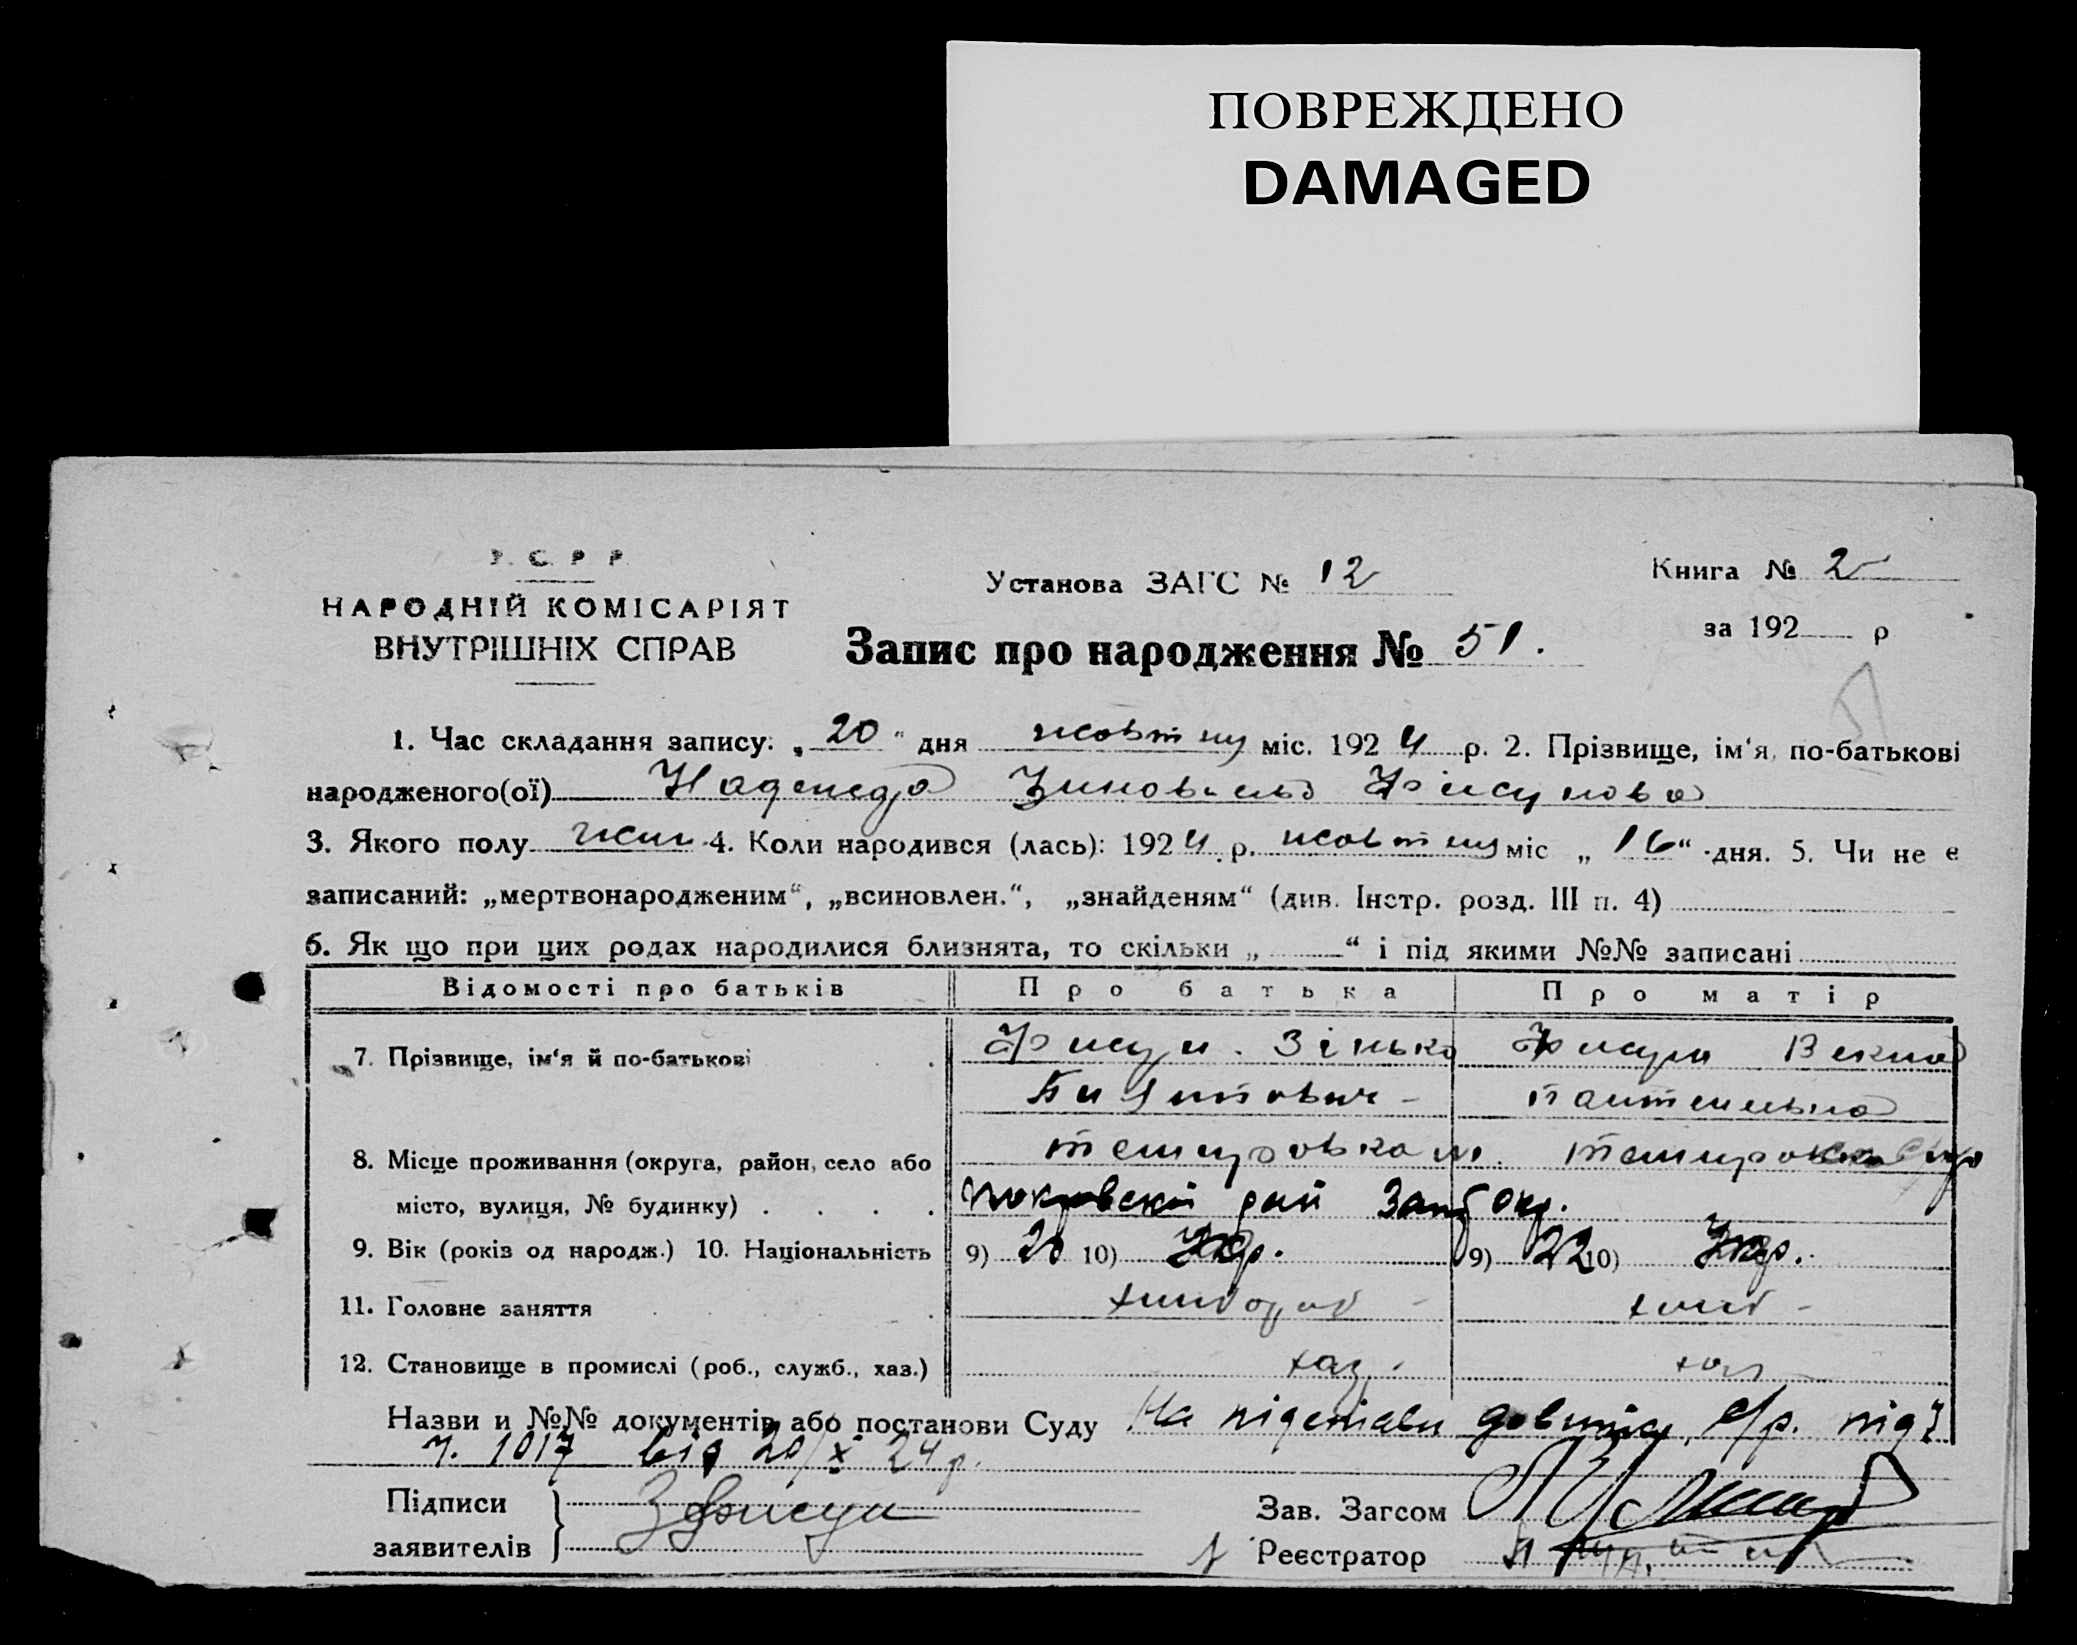 ПОВРЕЖДЕНО
DAMAGED
У. С. Р. Р.
НАРОДНІЙ КОМІСАРІЯТ
ВНУТРІШНІХ СПРАВ
Установа ЗАГС № 12
Книга № 2
за 192 р
Запис про народження № 51.
1. Час складання запису: „20“ дня жовтну міс. 1924 р. 2. Прізвище, ім‘я, по-батькові
народженого(ої) Надежда Фисунова
3. Якого полу жін 4. Коли народився (лась): 1924 р. жовтну міс „16“ дня. 5. Чи не є
записаний: „мертвонародженим“, „всиновлен.“, „знайденям“ (див. Інстр. розд. III п. 4)
6. Як що при цих родах народилися близнята, то скільки „ “ і під якими №№ записані
Відомості про батьків Про батька Про матір
7. Прізвище, ім‘я й по-батькові Фисун Зінько Фисун
8. Місце проживання (округа, район, село або
місто, вулиця, № будинку) Покровскій рай Зап. окр.
9. Вік (років од народж.) 10. Національність 9) 20 10) Укр. 9) 22 10) Укр.
11. Головне заняття хлібороб хліб
12. Становище в промислі (роб., служб., хаз.) хаз. хаз
Назви и №№ документів або постанови Суду На підставі с/р. під
ч. 1017 від 20/X 24 р.
Підписи З Фисун
заявителів
Зав. Загсом
Реєстратор